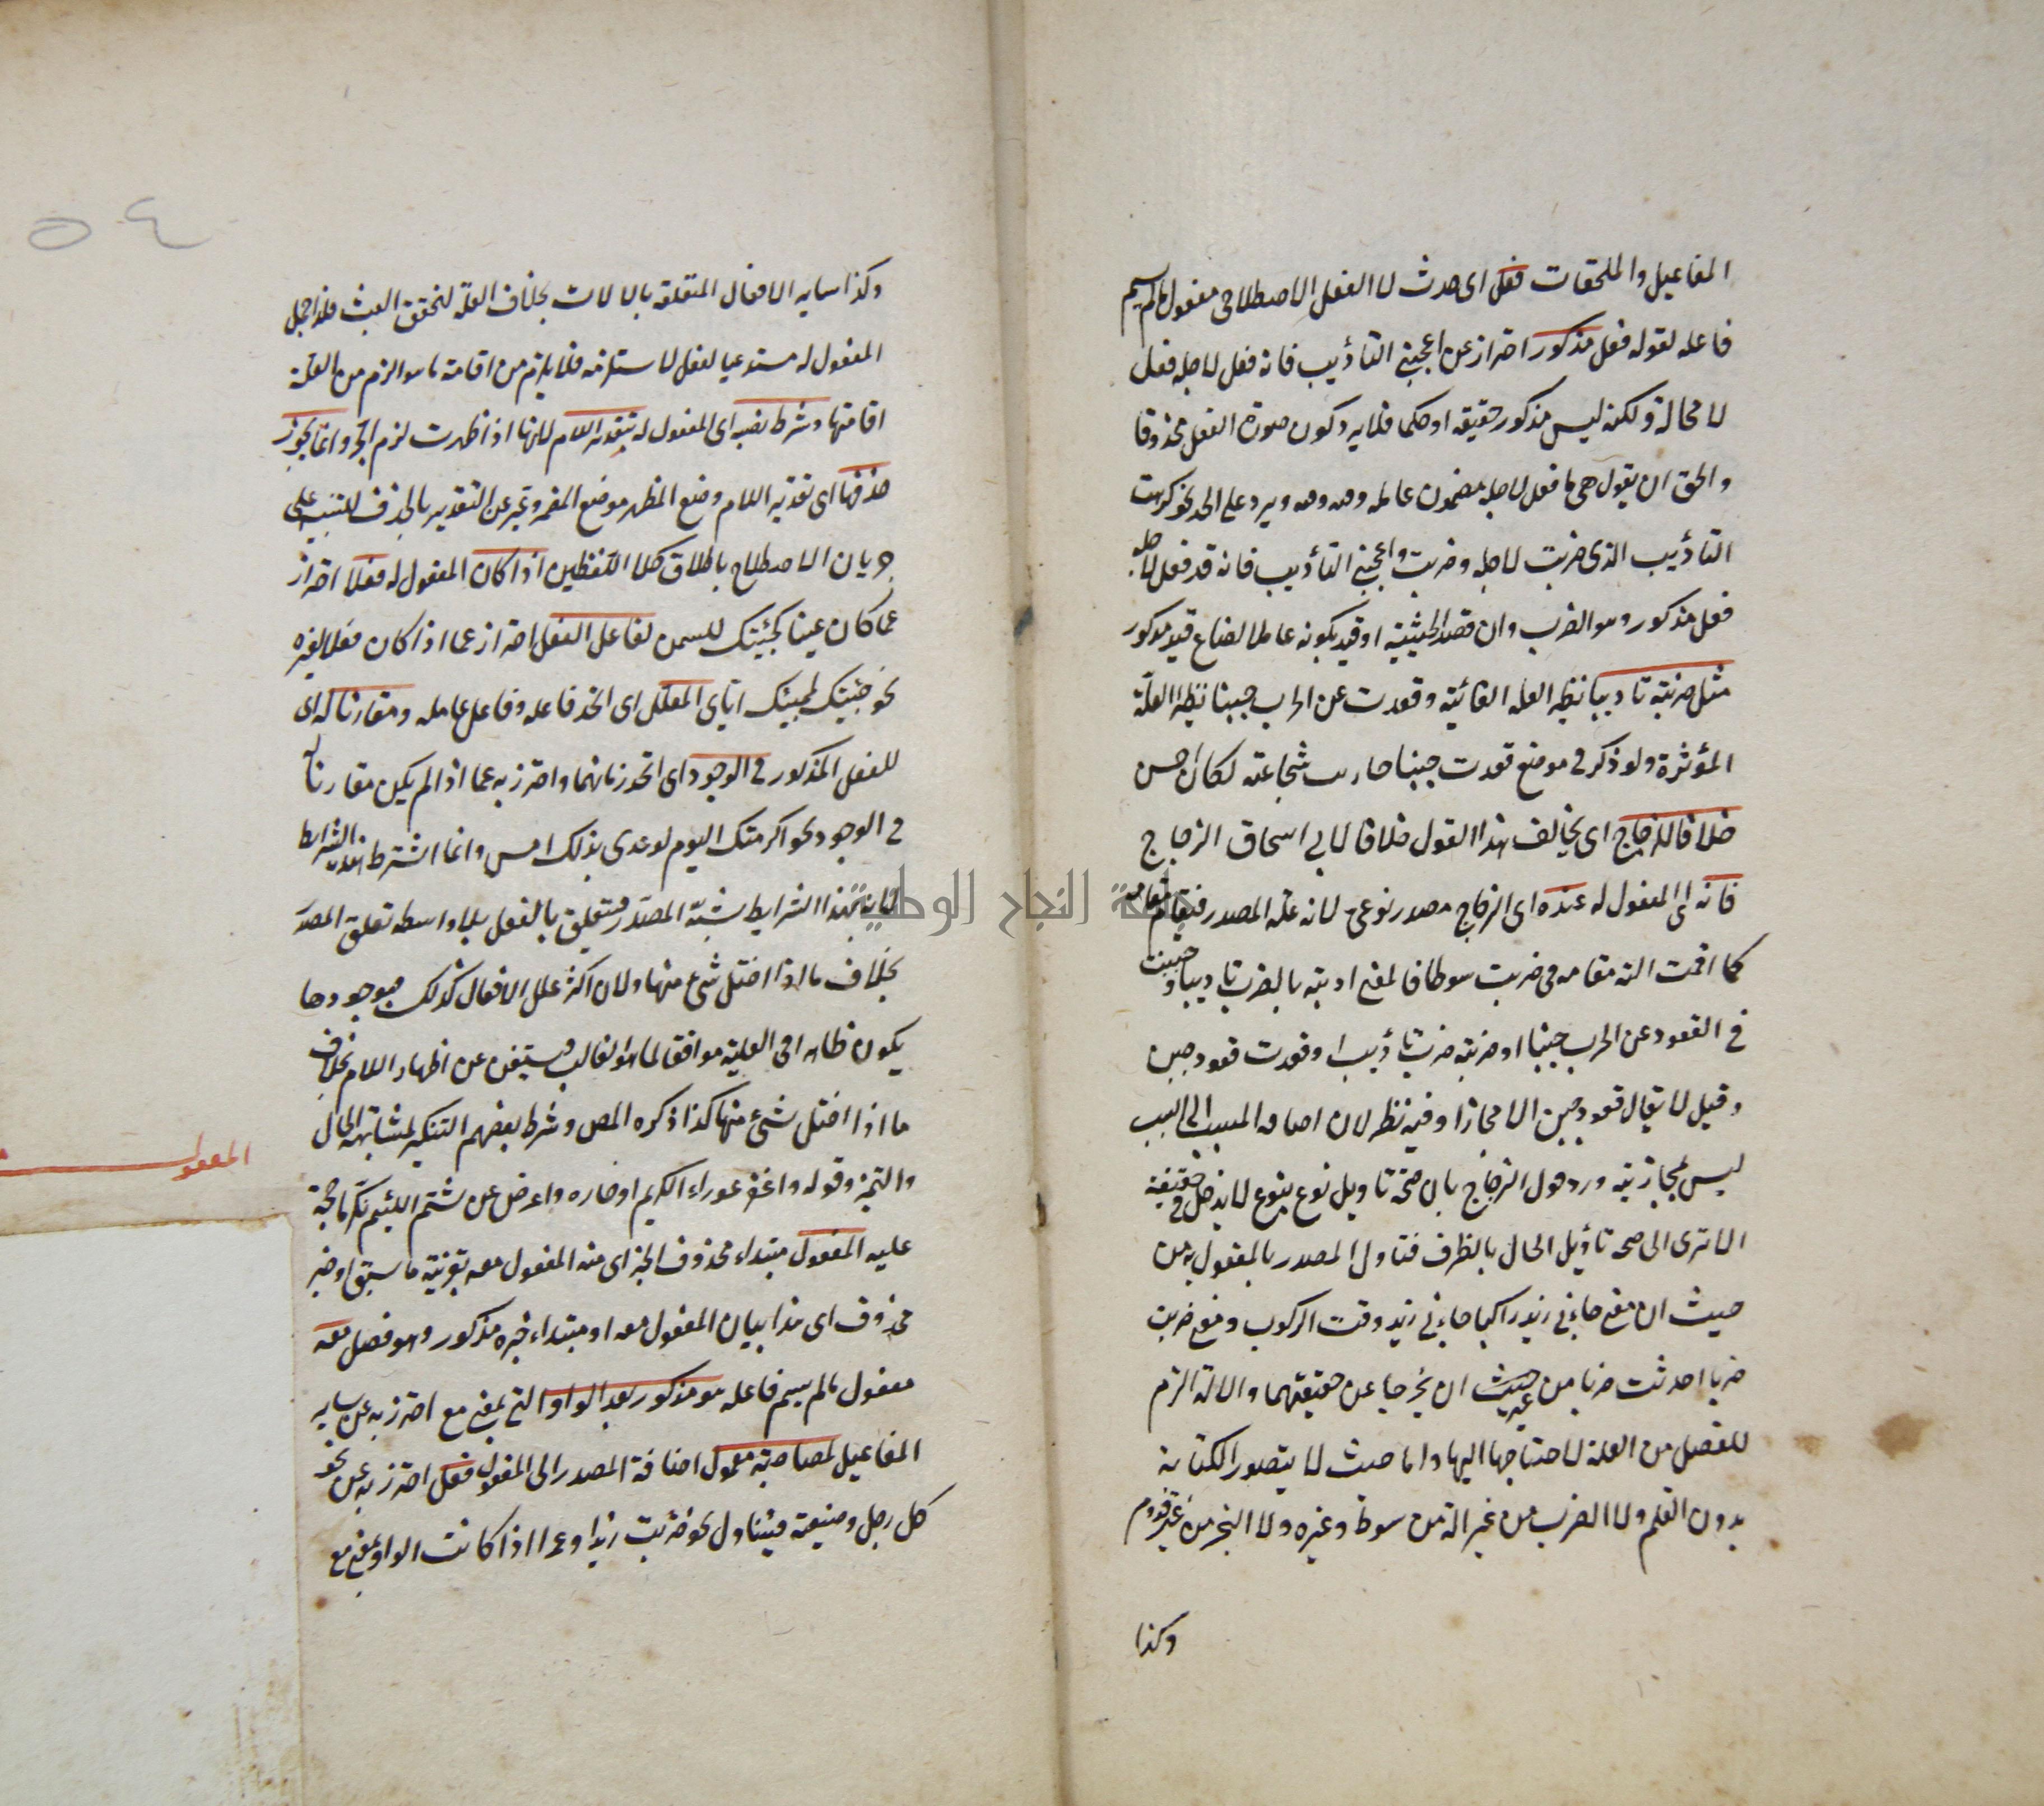 المفاعيل والملحقات فعل اى حدث لا الفعل الاصطلاحى مفعول مالم يسم
فاعله لقوله فعل مذكور احتراز عن اعجبنى التأديب فانه فعل لاجله فعل
لا محالة ولكنه ليس مذكور حقيقة او حكما فلا يرد كون صورة الفعل محذوفا
والحق ان يقول هى ما فعل لاجله مضمون عامله وهه وهه ويرد على الحد نحو كرهت
التأديب الذى ضربت لاجله وضربت واعجبنى التأديب فانه قد فعل لاجله
فعل مذكور وهو الضرب وان قصد الحيثية او قيد بكونه عاملا لضاع قيد مذكور
مثل ضربته تاديبا نظير العلة الغائية وقعدت عن الحرب جبنا نظير العلة
المؤثرة ولو ذكر فى موضع قعدت جبنا حارب شجاعته لكان احسن
خلافا للزجاج اى يخالف هذا القول خلافا لابى اسحاق الزجاج
فانه اى المفعول له عنده اى الزجاج مصدر نوعى لانه علة المصدر فيقام مقامه
كما اقمت الة مقامه فى ضربت سوطا فالمعنى ادبته بالضرب تاديبا وجبنت
فى القعود عن الحرب جبنا او ضربته ضرب تأديب او قعدت قعود جبن
وقيل لا يقال قعود جبن الا مجازا وفيه نظر لان اضافة المسبب الى السبب
ليس بمجازية ورد قول الزجاج بان صحة تاويل نوع بنوع لا يدخل فى حقيقة
الا ترى الى صحة تأويل الحال بالظرف فتاول المصدر بالمفعول به من
حيث ان معنى جاءنى زيد راكبا جاءنى زيد وقت الركوب ومعنى ضربت
ضربا احدثت ضربا من غير حيث ان يخرجا عن حقيقتهما والالة الزم
للفعل من العلة لاحتياجها اليها دائما حيث لا يتصور الكتابة
بدون القلم ولا الضرب من غير الة من سوط وغيره ولا النجر من غير قدوم
وكذا
٥٤
وكذا ساير الافعال المتعلقة بالالات بخلاف العلة لتحقق العبث فلذا جعل
المفعول له مستدعيا لفعل لاستلزمه فلا يلزم من اقامة ما هو الزم من العلة
اقامتها وشرط نصبه اى المفعول له تقدير اللام لانها اذا ظهرت لزم الجر وانما يجوز
حذفها اى تقدير اللام وضع المظهر موضع المضمر وعبر عن التقدير بالحذف للتنبيه على
جريان الاصطلاح باطلاق كلا اللفظين اذا كان المفعول له فعلا احتراز
عما كان عينا كجئتك للسمن لفاعل الفعل احتراز عما اذا كان فعلا لغيره
نحو جئتك لمجيئك اياى المعلل اى اتحد فاعله وفاعل عامله ومقارنا له اى
للفعل المذكور فى الوجود اى اتحد زمانهما واحترز به عما اذا لم يكن مقارنا له
فى الوجود نحو اكرمتك اليوم لوعدى بذلك امس وانما اشترط هذه الشرايط
لانه بهذا الشرايط يشبه المصدر فيتعلق بالفعل بلا واسطه تعلق المصدر
بخلاف ما اذا اختل شئ منها ولان اكثر علل الافعال كذلك فبوجودها
يكون ظاهرا فى العلية موافقا لما هو الغالب فيستغنى عن اظهار اللام بخلاف
ما اذا اختل شئ منها كذا ذكره المص وشرط بعضهم التنكير لمشابهة الحال
والتميز وقوله واغفر عوراء الكريم ادخاره واعرض عن شتم اللئيم تكرما حجة
عليه المفعول مبتداء محذوف الخبر اى منه المفعول معه بقرينة ما سبق او خبر
محذوف اى هذا بيان المفعول معه او مبتداء خبره مذكور وهو فصل معه
مفعول مالم يسم فاعله هو مذكور بعد الواو التى بمعنى مع احترز به عن ساير
المفاعيل لمصاحبة معمول اضافة المصدر الى المفعول فعل احترز به عن نحو
كل رجل وضيعته فيتناول نحو ضربت زيدا وعمرا اذا كانت الواو بمعنى مع
المفعول
جامعة النجاح الوطنية